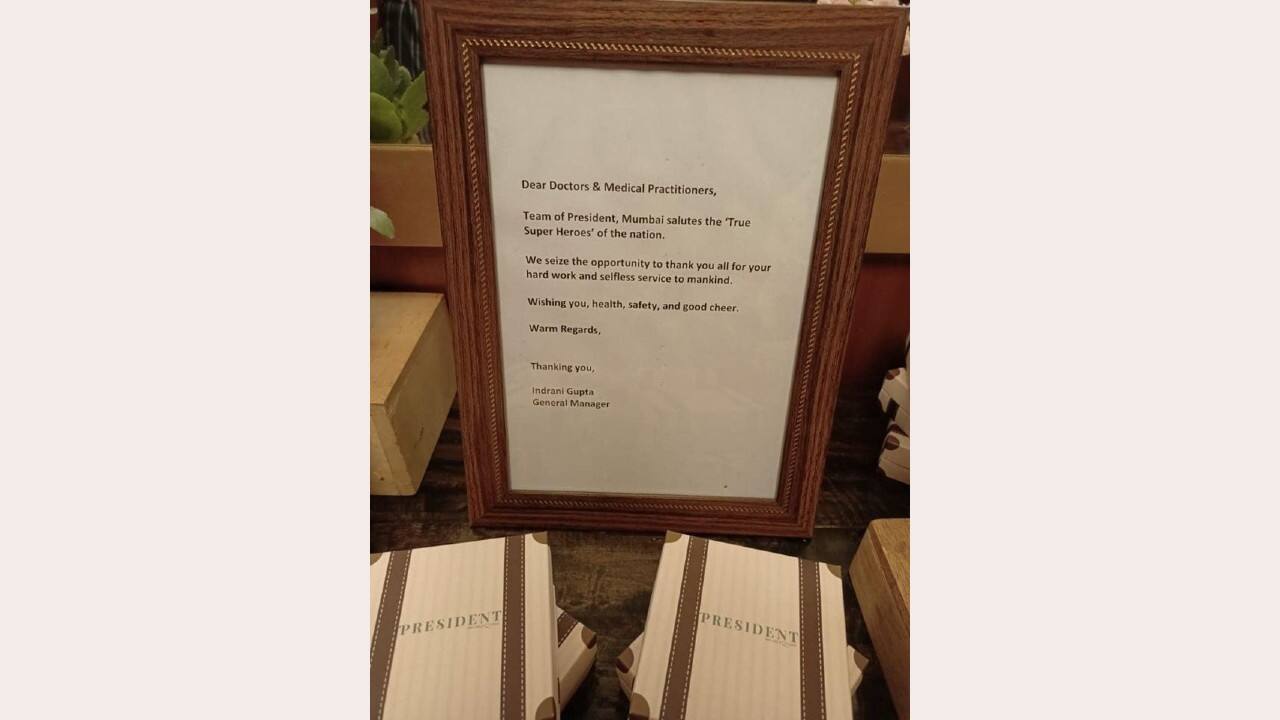 Dear Doctors & Medical Practitioners,
Team of President, Mumbai salutes the ‘True
Super Heroes’ of the nation.
We seize the opportunity to thank you all for your
hard work and selfless service to mankind.
Wishing you, health, safety, and good cheer.
Warm Regards,
Thanking you,
Indrani Gupta
General Manager
PRESIDENT
PRESIDENT